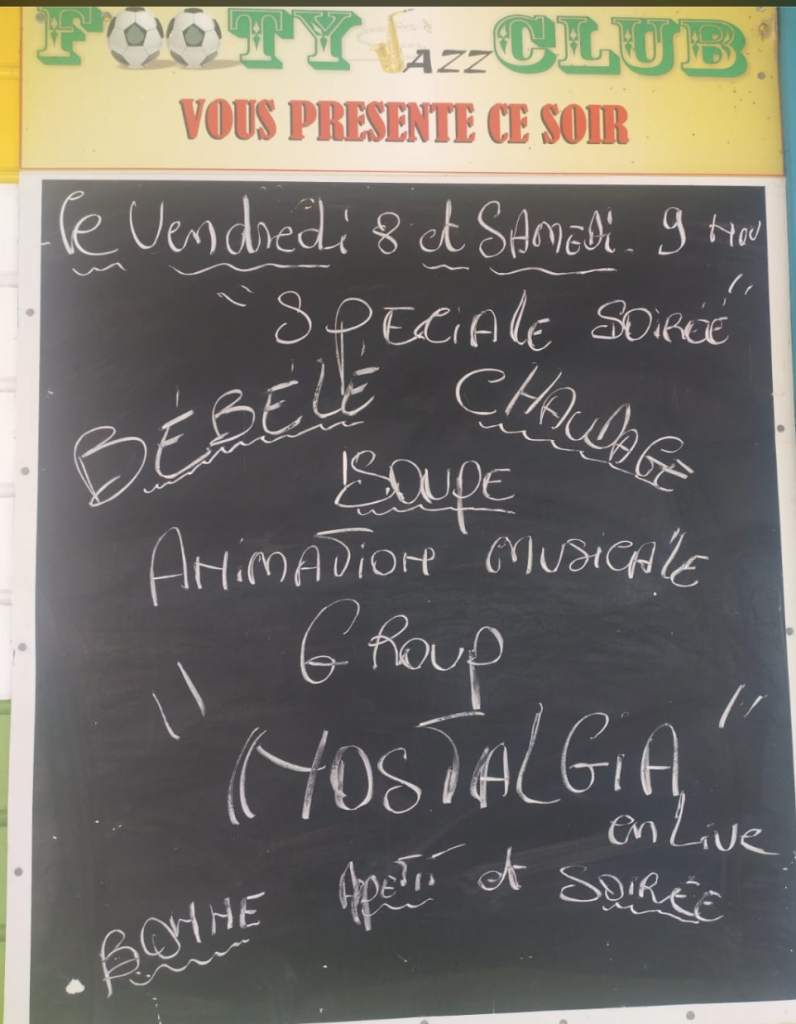 FOOTY JAZZ CLUB
VOUS PRESENTE CE SOIR
Le Vendredi 8 et SAMEDI. 9 NOV
"SPECIALE SOIRÉE"
BÉBÉLÉ CHAUDAGE
SOUPE
ANIMATION MUSICALE
GROUP
"NOSTALGIA"
en Live
BONNE APETIT et SOIRÉE